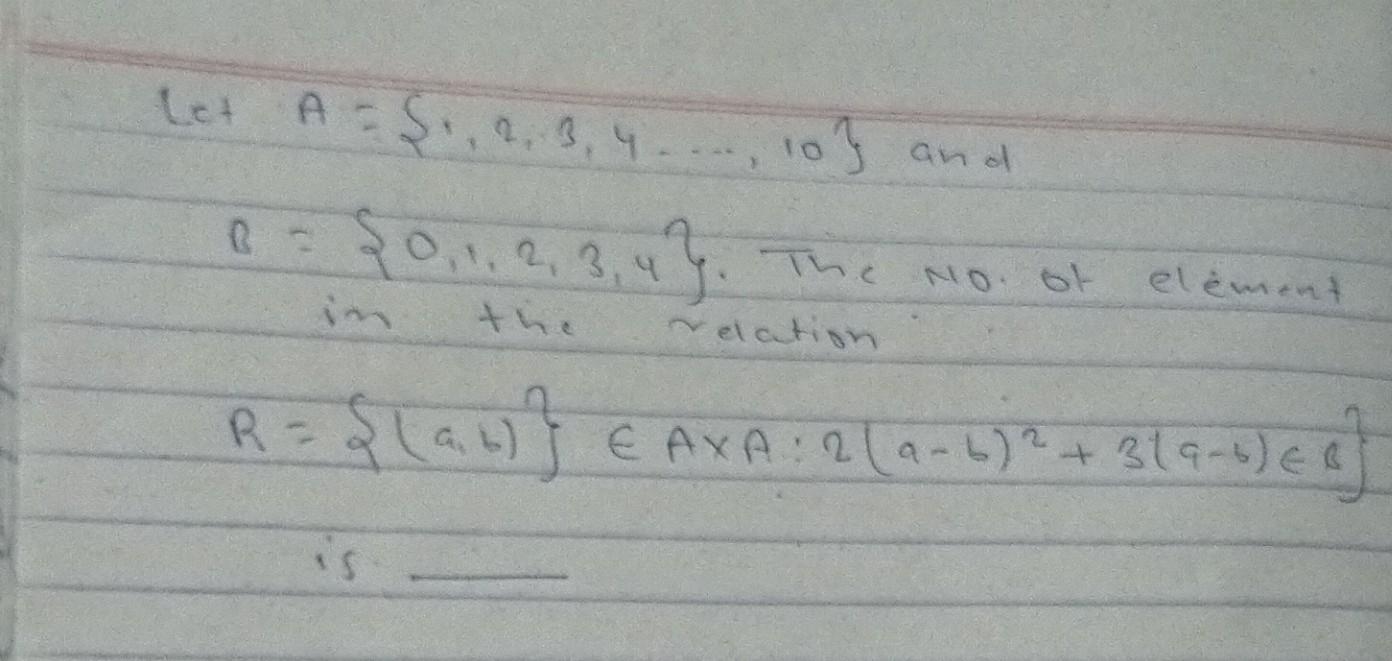 Let A = {1, 2, 3, 4 ...., 10} and
B = {0, 1, 2, 3, 4}. The No. of element
in the relation
R = {(a, b)} ∈ A×A : 2(a-b)² + 3(a-b) ∈ B}
is ____